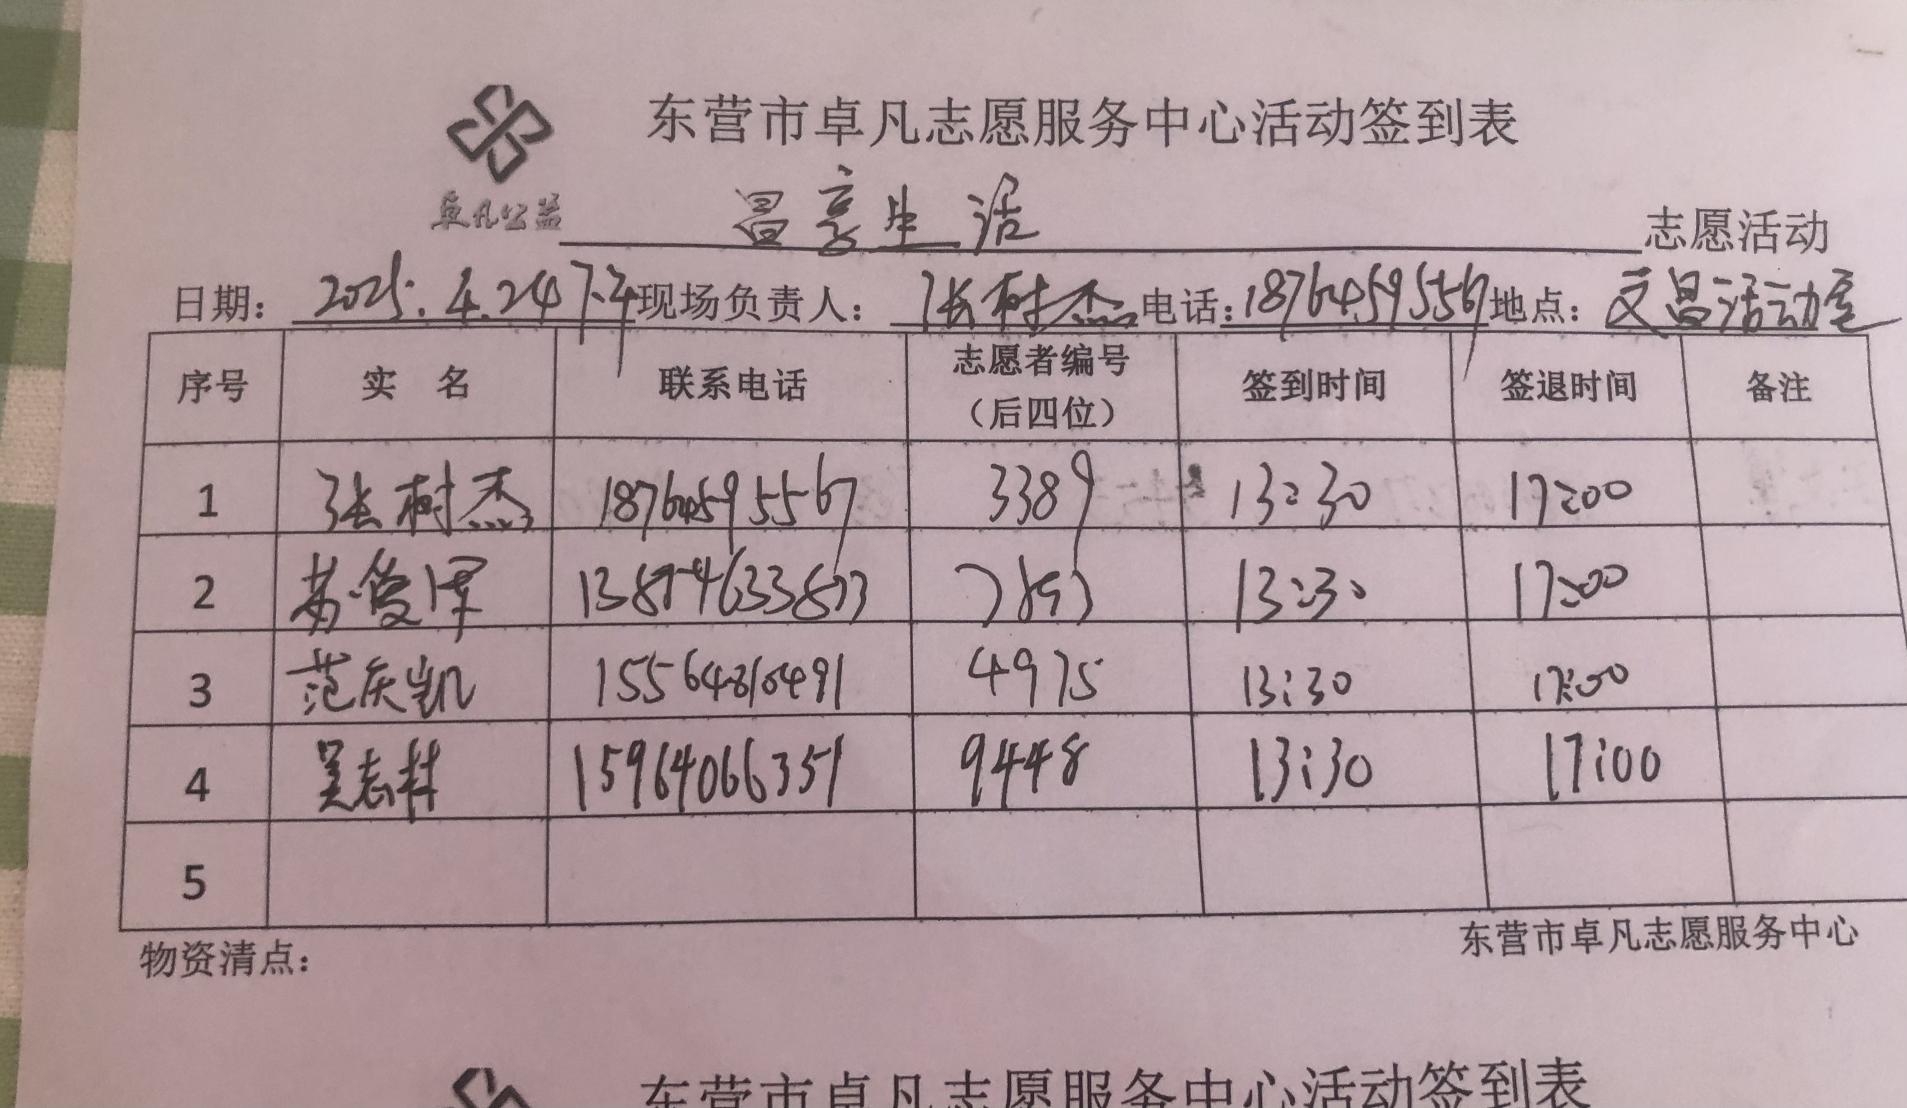 东营市卓凡志愿服务中心活动签到表
卓凡公益 昌享生活 志愿活动
日期：2025.4.24下午 现场负责人：张树杰 电话：18764595567 地点：文昌活动室
序号 实名 联系电话 志愿者编号（后四位） 签到时间 签退时间 备注
1 张树杰 18764595567 3389 13:30 17:00
2 13:30 17:00
3 范庆凯 15564816491 4975 13:30 17:00
4 吴志林 15964066351 9448 13:30 17:00
5
物资清点： 东营市卓凡志愿服务中心
东营市卓凡志愿服务中心活动签到表